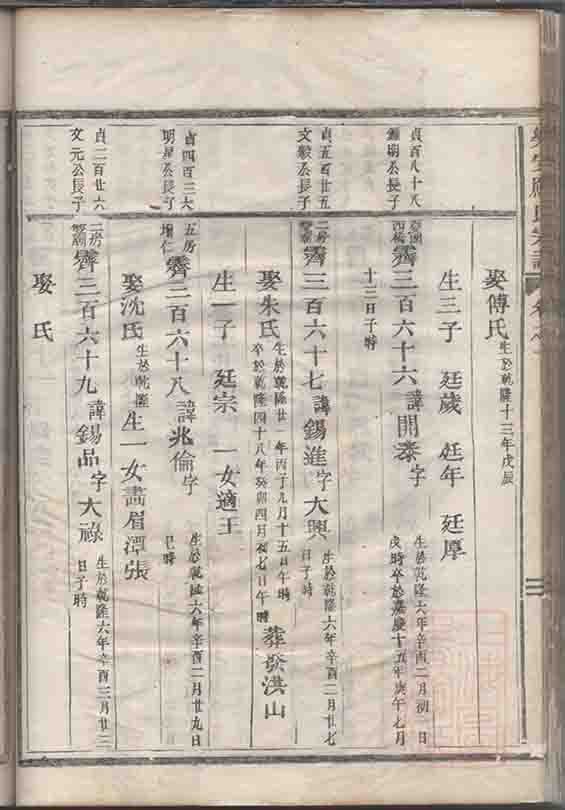 娶傅氏生於乾隆十三年戊辰
生三子 廷歲 廷年 廷厚
貞百八十八
公長子
霽三百六十六諱開泰字 生於乾隆六年辛酉二月初一日
戌時卒於嘉慶十五年庚午七月
十三日子時
貞五百廿五
文毅公長子
二房
霽三百六十七諱錫進字大興 生於乾隆六年辛酉二月廿七
日子時
娶朱氏生於乾隆廿一年丙子九月十五日午時
卒於乾隆四十八年癸卯四月初七日午時 葬發洪山
生一子 廷宗 一女適王
貞四百三六
明星公長子
五房
增仁
霽三百六十八諱兆倫字 生於乾隆六年辛酉二月廿九日
巳時
娶沈氏生於乾隆 生一女適眉潭張
貞二百廿六
文元公長子
二房
霽三百六十九諱錫品字大祿 生於乾隆六年辛酉三月廿三
日子時
娶 氏